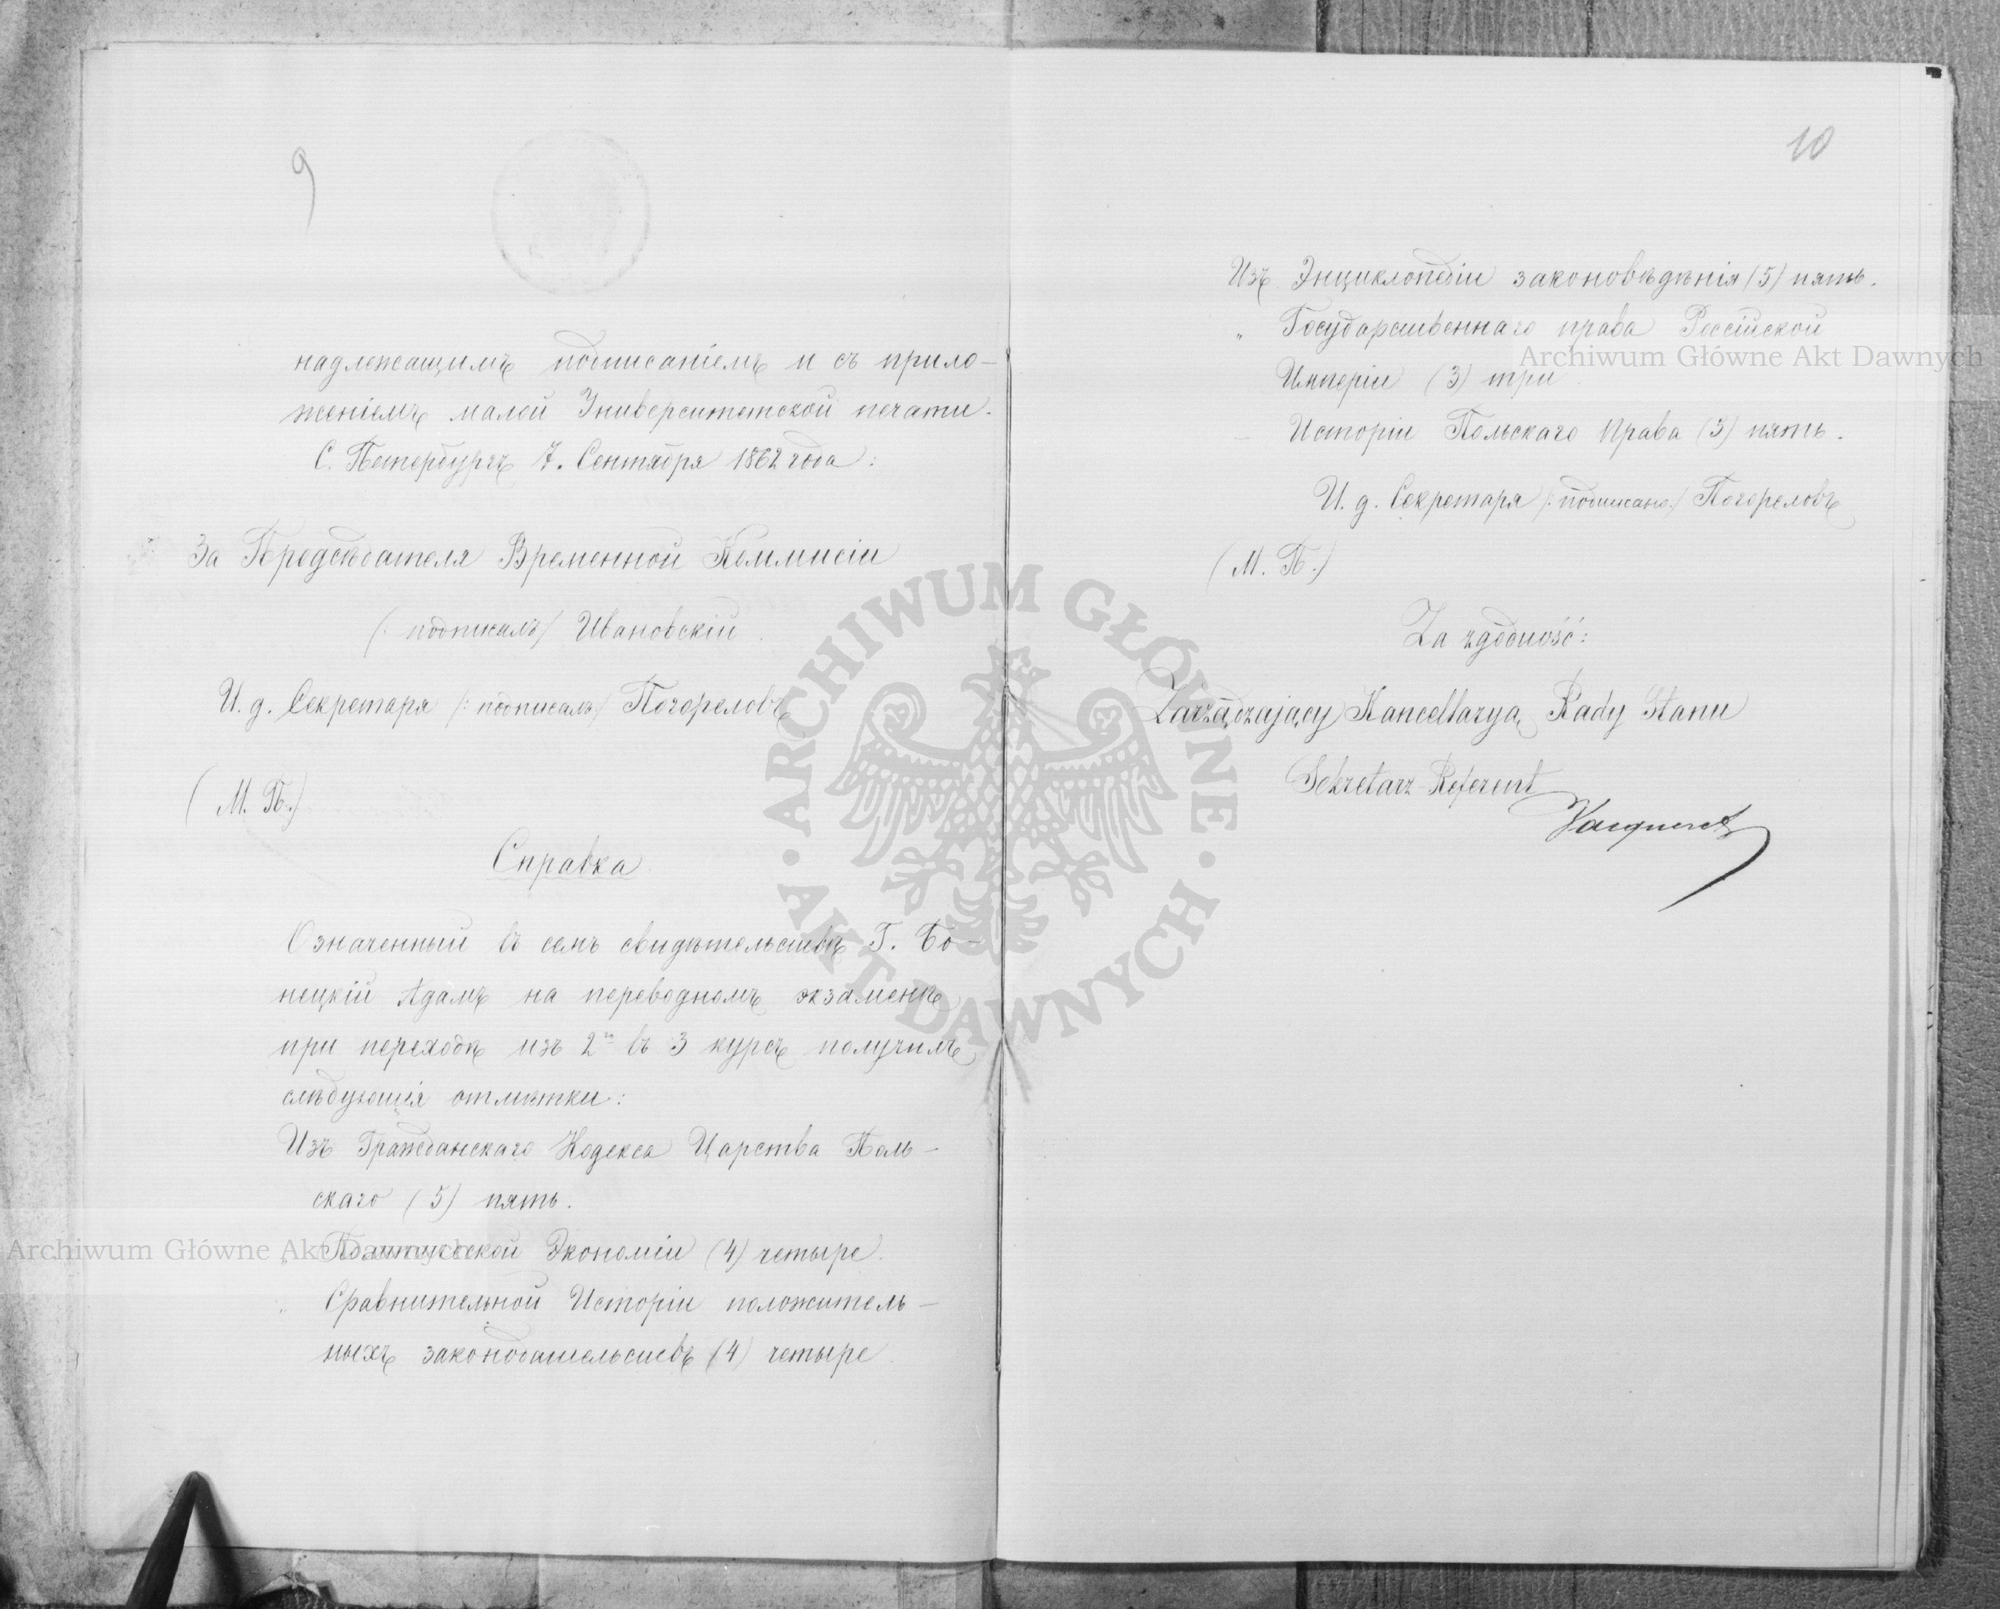 9
надлежащимъ подписаніемъ и съ прило-
женіемъ малой Университетской печати.
С. Петербургъ 7. Сентября 1862 года:
За Предсѣдателя Временной Коммисіи
(: подписалъ) Ивановскій
И. д. Секретаря (: подписалъ) Погореловъ
(М. П.)
Справка
Означенный въ семъ свидѣтельствѣ Г. Бо-
нецкій Адамъ на переводномъ экзаменѣ
при переходѣ изъ 2го въ 3 курсъ получилъ
слѣдующія отмѣтки:
Изъ Гражданскаго Кодекса Царства Поль-
скаго (5) пять.
„ Политической Экономіи (4) четыре.
„ Сравнительной Исторіи положитель-
ныхъ законодательствъ (4) четыре
10
Изъ Энциклопедіи законовѣдѣнія (5) пять.
„ Государственнаго права Россійской
Имперіи (3) три
– Исторіи Польскаго Права (5) пять.
И. д. Секретаря (: подписано) Погореловъ
(М. П.)
Za zgodność:
Zarządzający Kancellaryą Rady Stanu
Sekretarz Referent
Archiwum Główne Akt Dawnych
Archiwum Główne Akt Dawnych
ARCHIWUM GŁÓWNE · AKT DAWNYCH ·